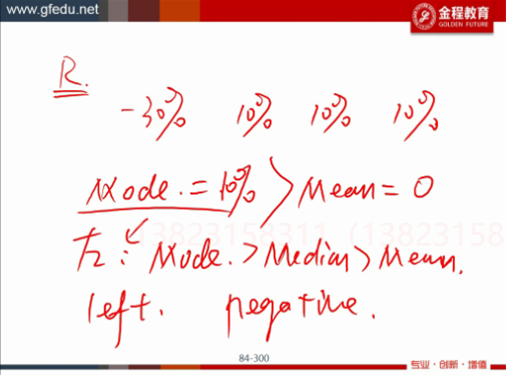 www.gfedu.net
金程教育
GOLDEN FUTURE
R.
-30% 10% 10% 10%
Mode. = 10% > Mean = 0
左: Mode. > Median > Mean.
13823158311 (13823158
left. negative.
84-300
专业·创新·增值